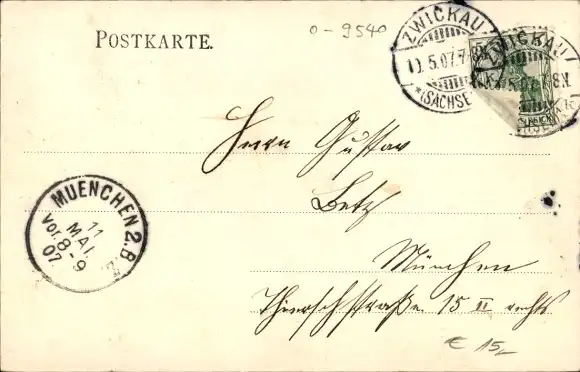 POSTKARTE.
0-9540
ZWICKAU
10.5.07.7-8N.
*(SACHSEN)
ZWICKAU
Herrn Gustav
Betz
München
Thierschstraße 15 II rechts
MUENCHEN 2.B.
11
MAI.
Vor. 8-9
07
€ 15,-